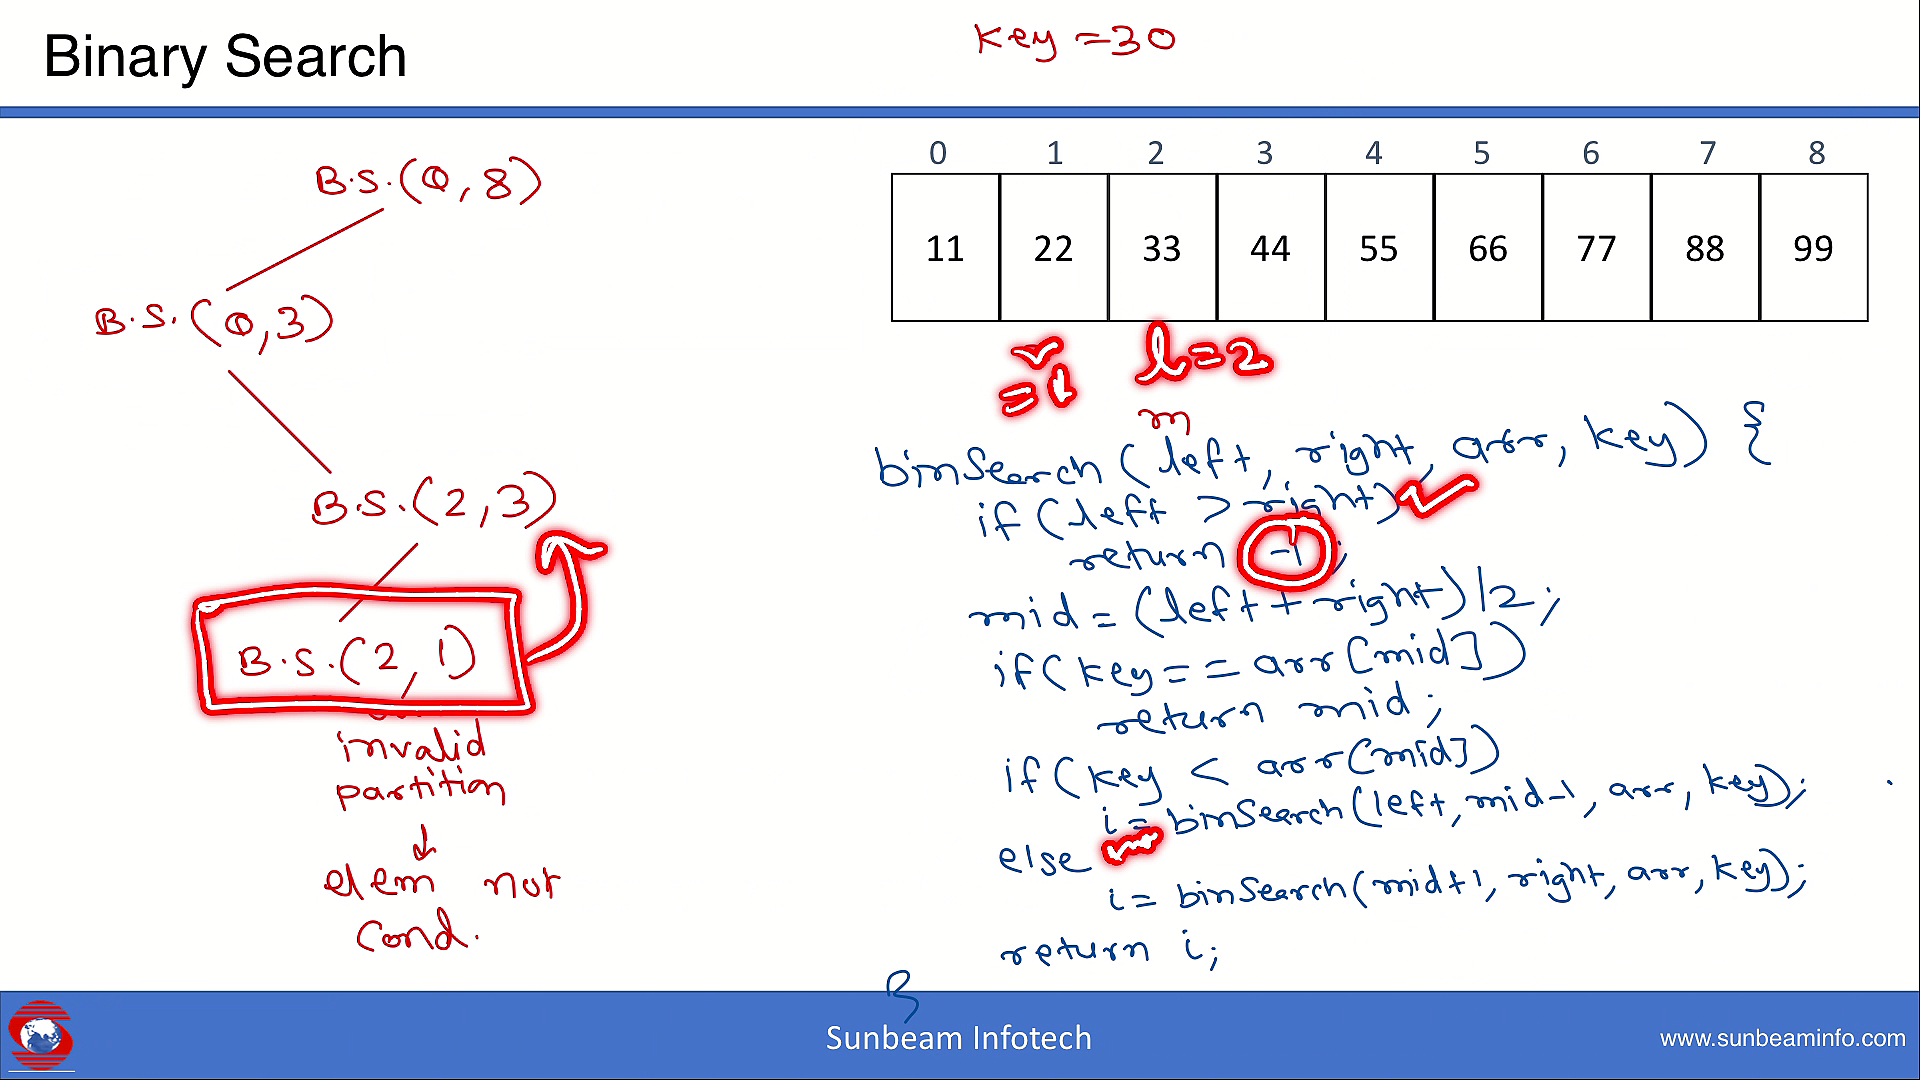 Binary Search
Key = 30
B.S.(0, 8)
B.S.(0,3)
B.S.(2,3)
B.S.(2,1)
invalid
partition
↓
elem not
cond.
0 1 2 3 4 5 6 7 8
11 22 33 44 55 66 77 88 99
r l=2
=1
m
binSearch(left, right, arr, key) {
if(left > right)
return -1;
mid = (left+right)/2;
if(key == arr[mid])
return mid;
if(key < arr[mid])
i = binSearch(left, mid-1, arr, key);
else
i = binSearch(mid+1, right, arr, key);
return i;
}
Sunbeam Infotech
www.sunbeaminfo.com